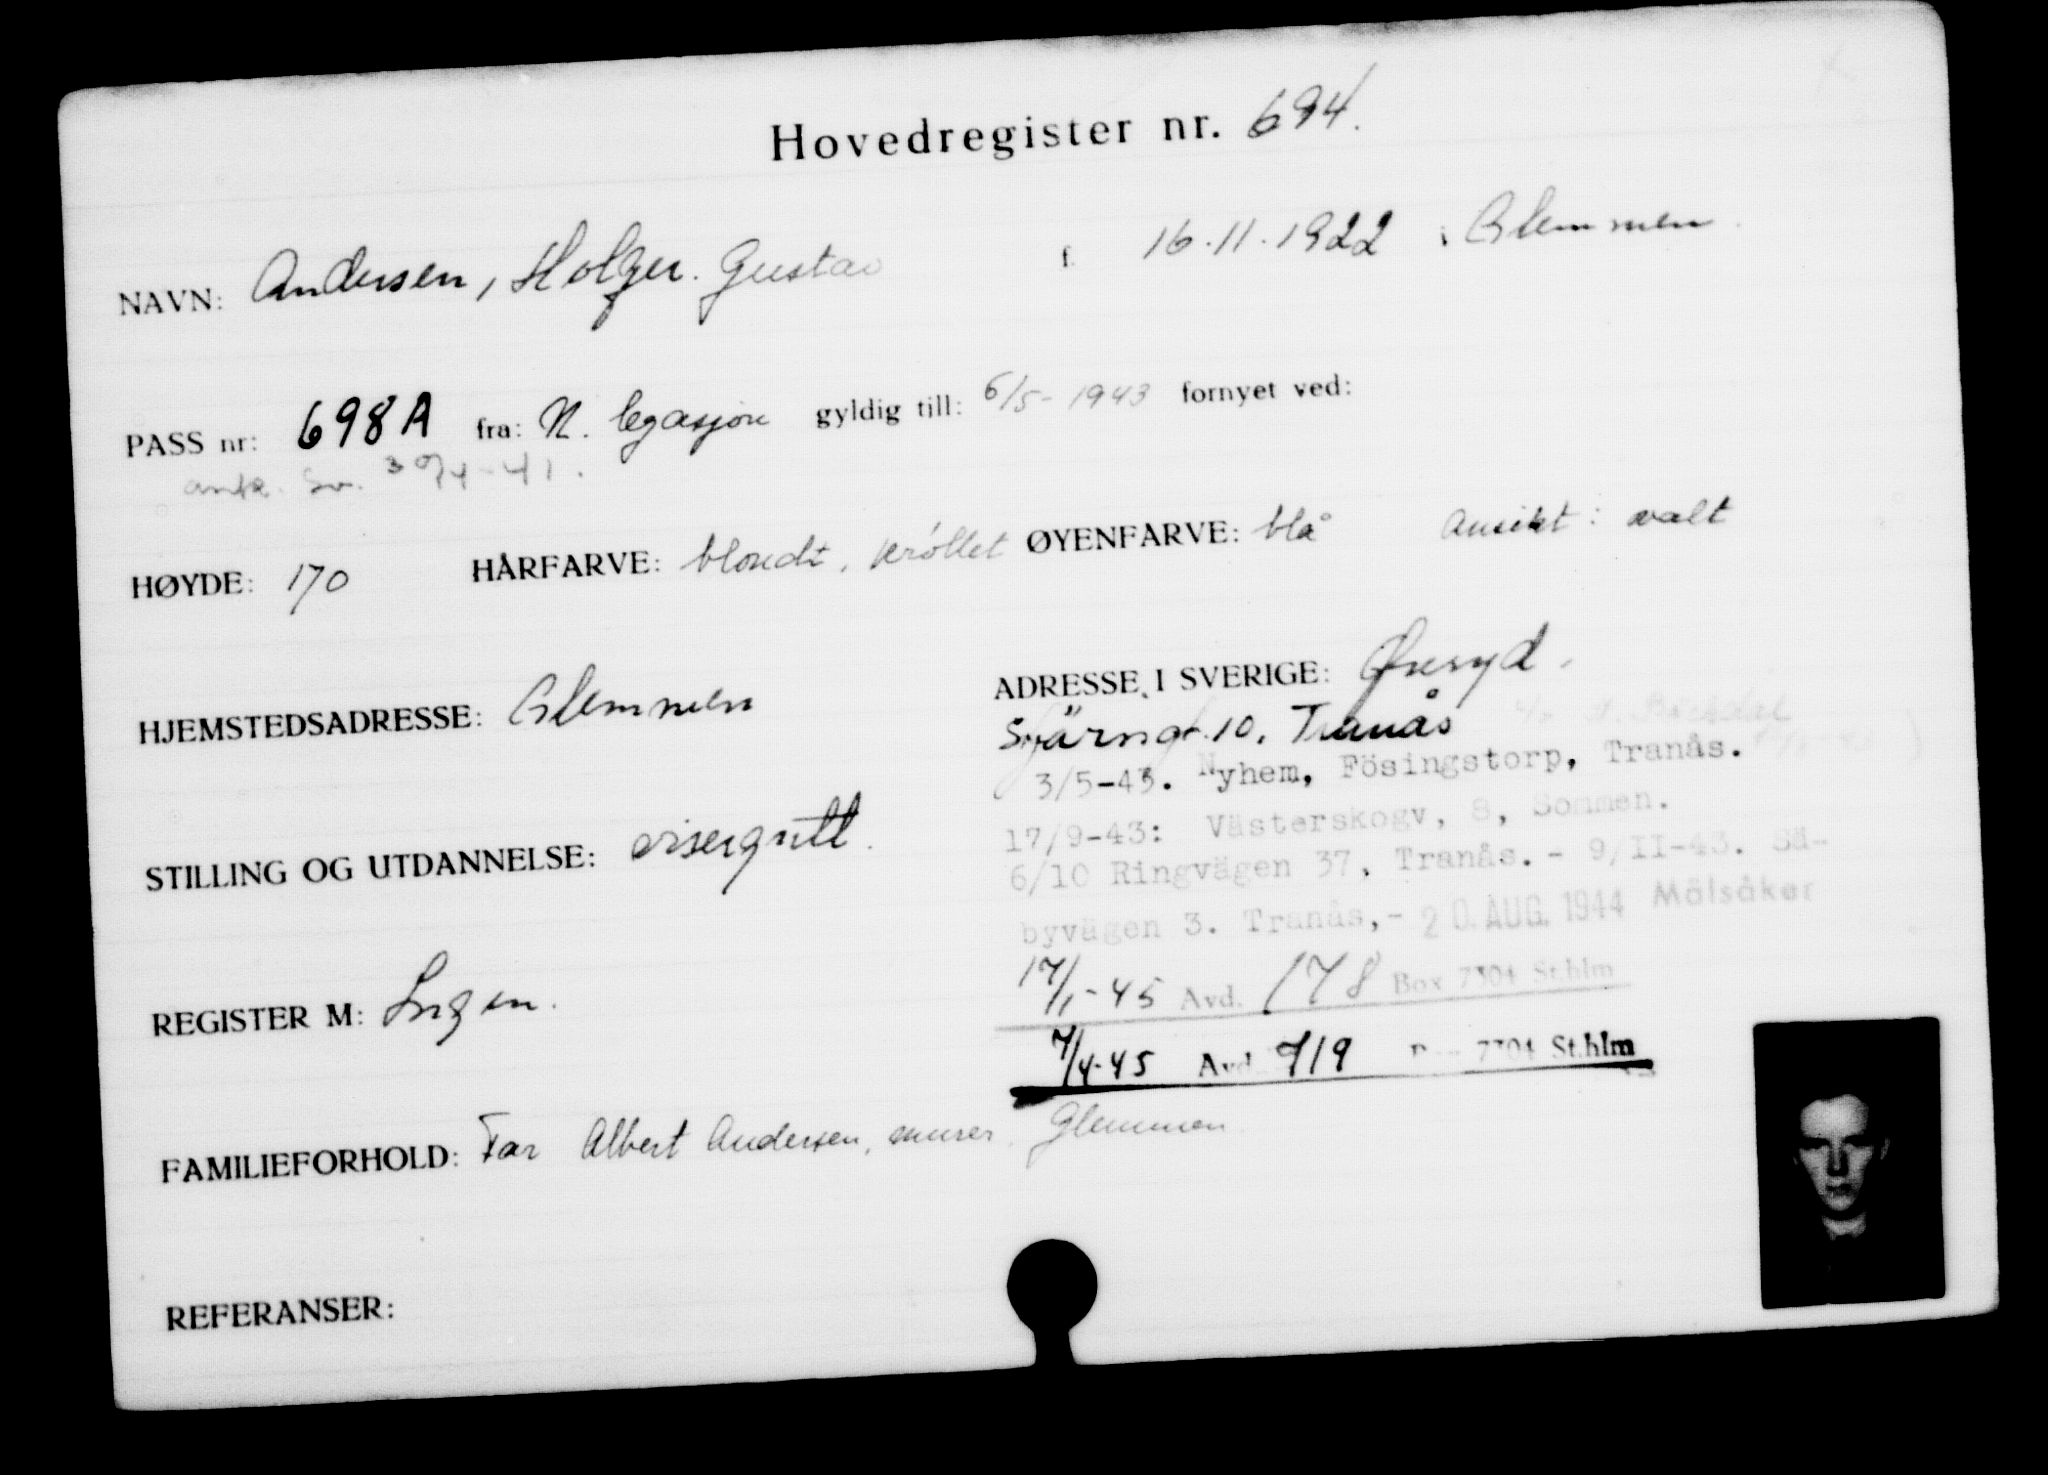 Hovedregister nr. 694.
NAVN: Andersen, Holger. Gustav f. 16.11.1922 i Glemmen.
PASS nr: 698A fra: N. legasjon gyldig till: 6/5-1943 fornyet ved:
ank. Sv. 30/4-41.
HØYDE: 170 HÅRFARVE: blondt, krøllet ØYENFARVE: blå Ansikt: ovalt
HJEMSTEDSADRESSE: Glemmen
ADRESSE I SVERIGE: Øreryd.
10, Tranås
3/5-43. Nyhem, Fösingstorp, Tranås.
17/9-43: Västerskogv, 8, Sommen.
6/10 Ringvägen 37, Tranås. - 9/II-43. Sä-
byvägen 3. Tranås,- 20. AUG. 1944 Mälsåker
17/1-45 Avd. 178 Box 7304 St.hlm
7/4-45 Avd. 719 7304 St.hlm
STILLING OG UTDANNELSE: visergutt.
REGISTER M: Ingen.
FAMILIEFORHOLD: Far Albert Andersen, murer. Glemmen.
REFERANSER: